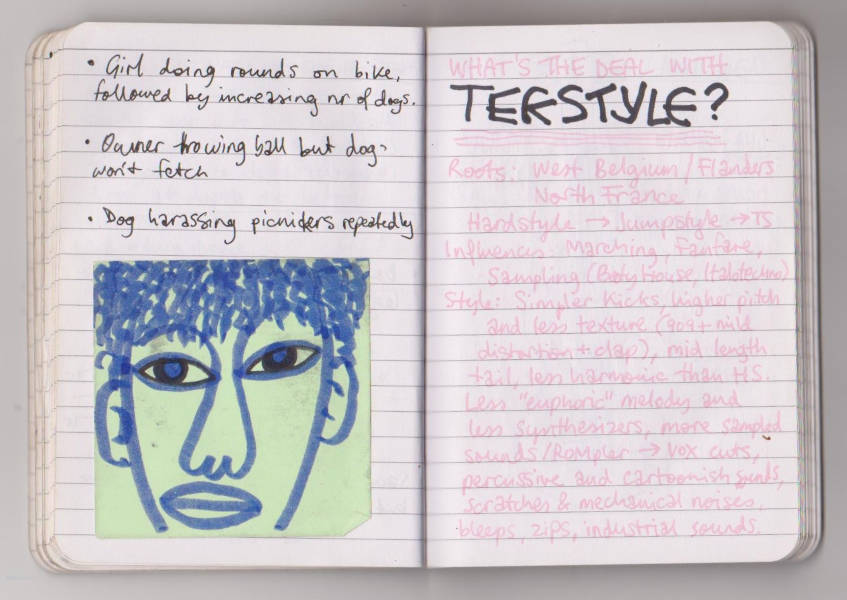 • Girl doing rounds on bike,
followed by increasing nr of dogs.
• Owner throwing ball but dog
won't fetch
• Dog harassing picnickers repeatedly
WHAT'S THE DEAL WITH
TEKSTYLE?
Roots: West Belgium/Flanders
North France
Hardstyle → Jumpstyle → TS
Influences: Marching, Fanfare,
Sampling (Booty House, Italotechno)
Style: Simpler Kicks, higher pitch
and less texture (909 + mild
distortion + clap), mid length
tail, less harmonic than HS.
Less "euphoric" melody and
less synthesizers, more sampled
sounds/Rompler → vox cuts,
percussive and cartoonish sounds,
scratches & mechanical noises,
bleeps, zips, industrial sounds.